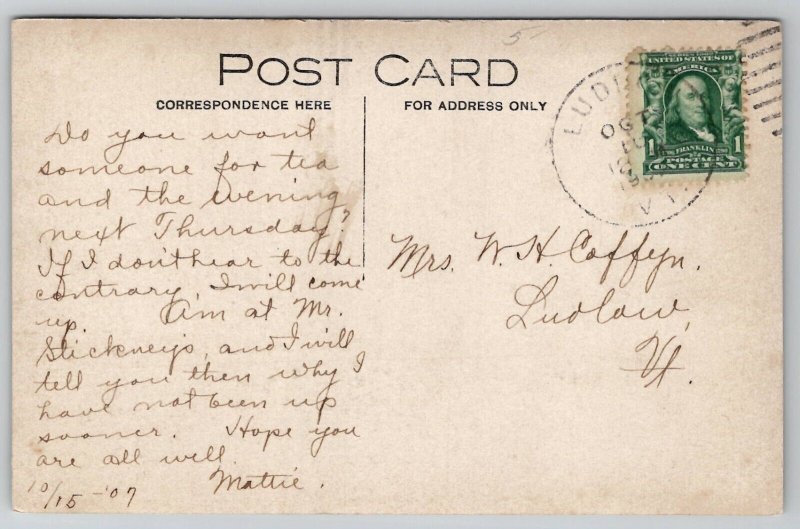 5
POST CARD
CORRESPONDENCE HERE
FOR ADDRESS ONLY
Do you want
someone for tea
and the evening
next Thursday?
If I don't hear to the
contrary, I will come
up. Am at Mr.
Stickney's, and I will
tell you then why I
have not been up
sooner. Hope you
are all well.
Mattie.
10/15-'07
UNITED STATES OF
AMERICA
1 FRANKLIN 1
POSTAGE
ONE CENT
OCT
VT.
Mrs. W. H. Coffyn.
Ludlow,
Vt.